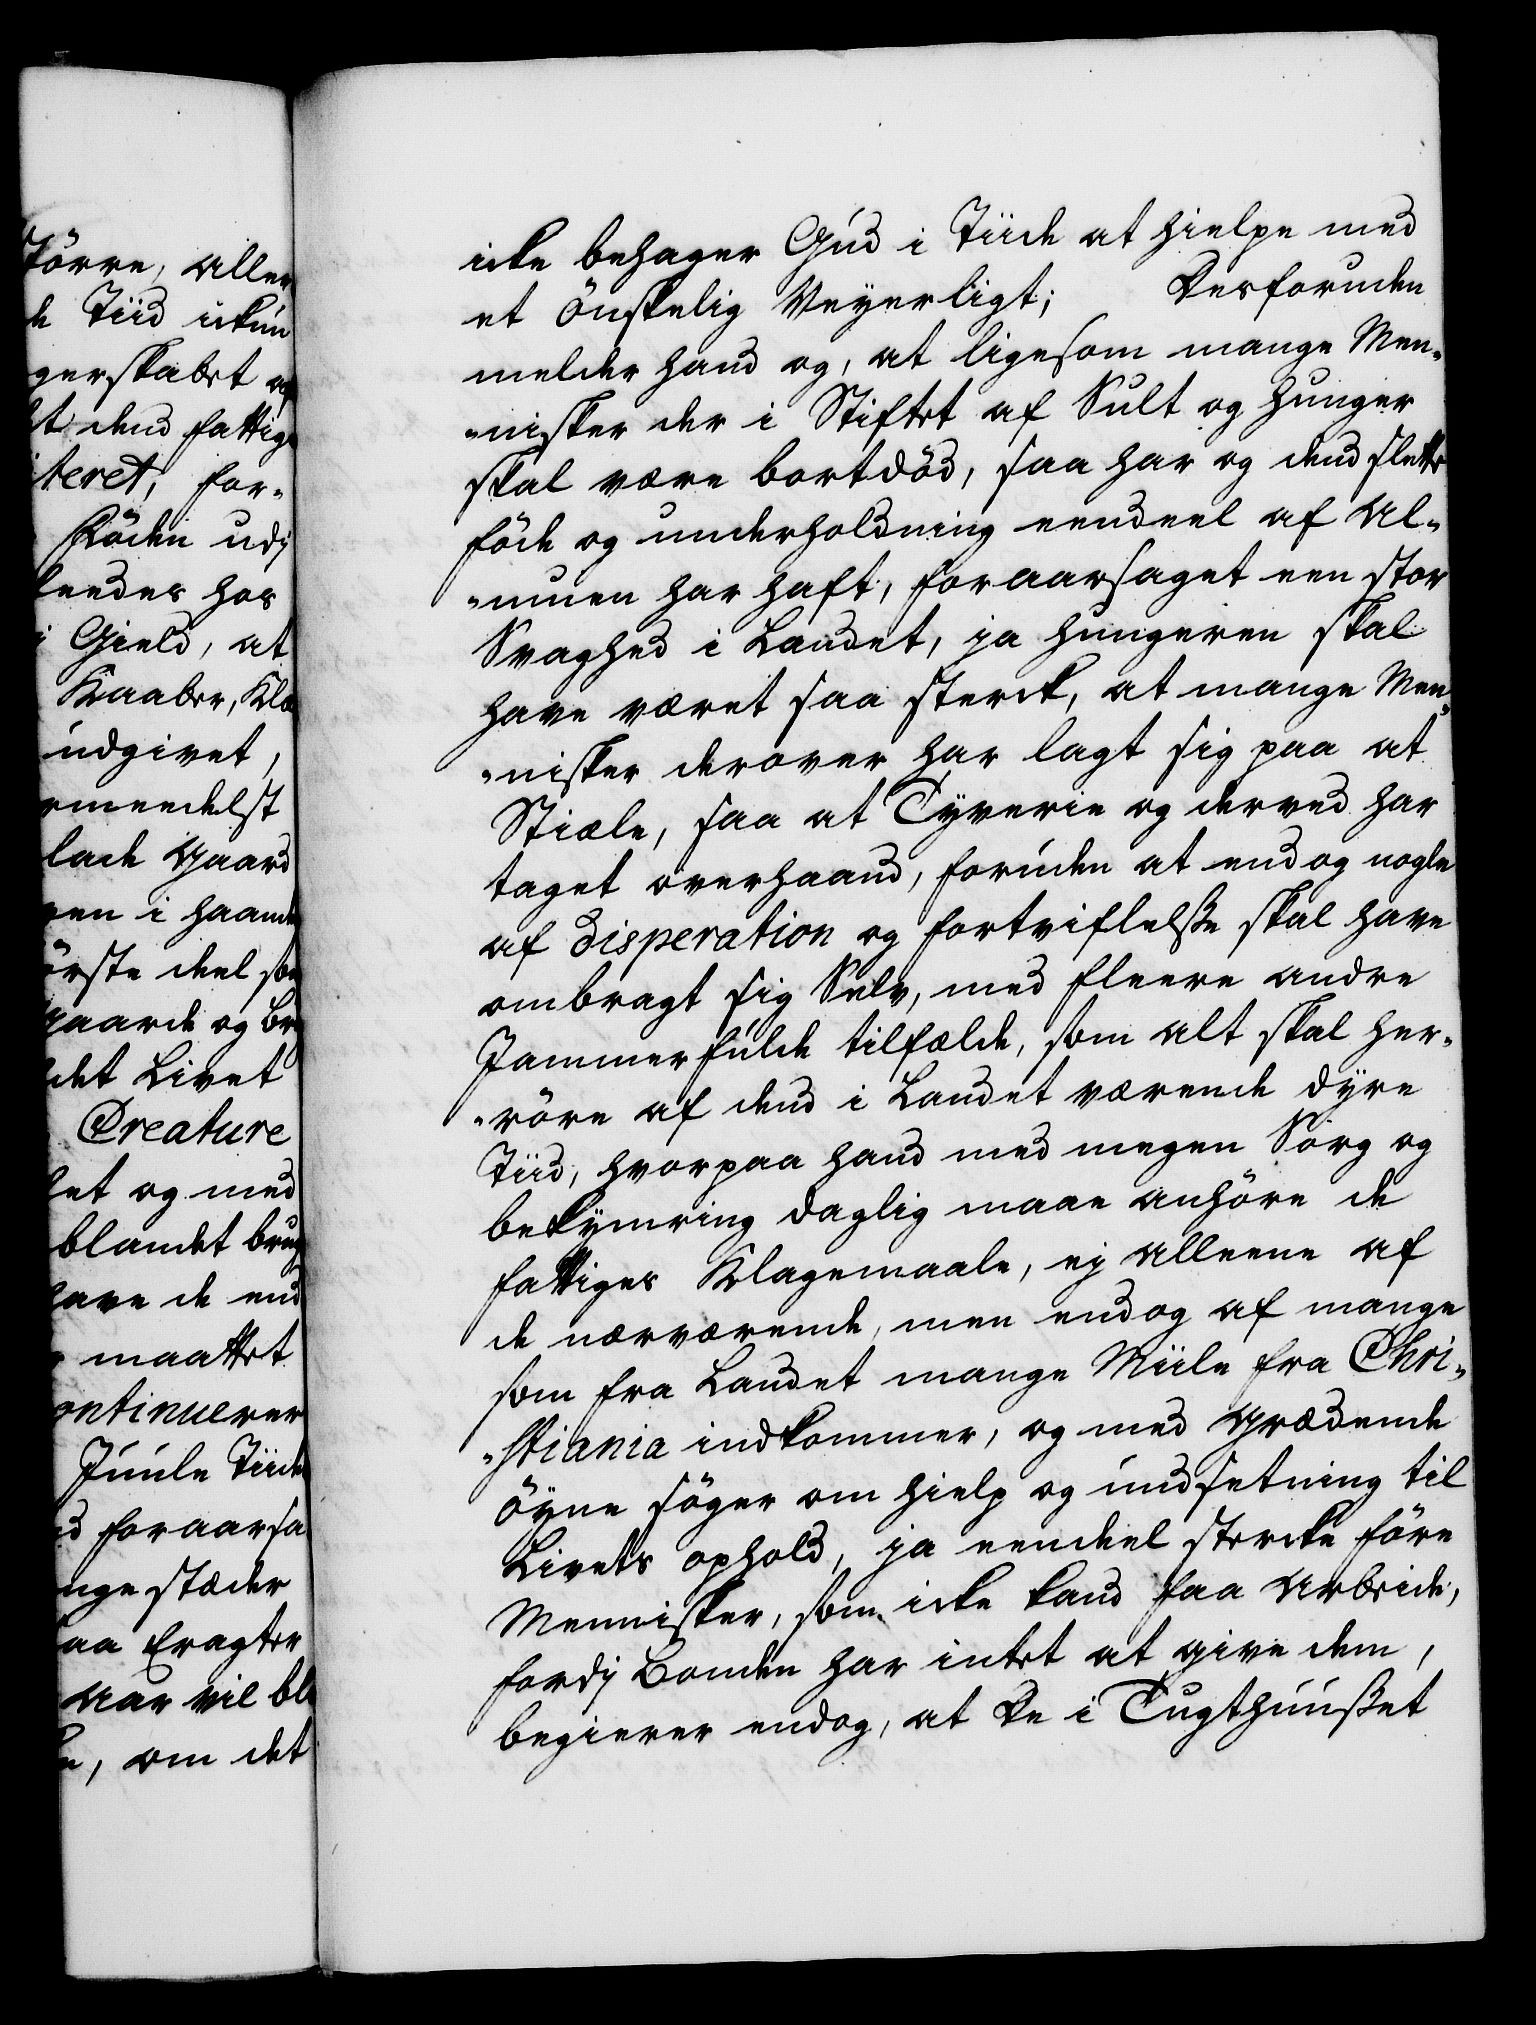 Törre, aller
de Tiid ickun
gerskabet og
t dend fattige
teret, for-
Föden udj
leedes hos
i Gield, at
Kaaber, Klæ
udgivet,
rmeedelst
lade gaard
ven i haand
örste deel som
gaarde og Br
det Livet
Creature
let og med
blandet brug
have de end
maattet
ontinuerer
Juule Tiide
d foraarsa
nge stæder
aa Eragter
Aar vil bli
e, om det
icke behager Gud i Tiide at hielpe med
et önskelig Veyerligt; Desforuden
melder hand og, at ligesom mange Men-
-nisker der i Stiftet af Sult og hunger
skal være bortdöd, saa har og dend slette
föde og underholdning eendeel af Al-
-muen har haft, foraarsaget een stor
Svaghed i Landet, ja hungeren skal
have været saa sterck, at mange Men-
-nisker derover har lagt sig paa at
Stiæle, saa at Tyverie og derved har
taget overhaand, foruden at endog nogle
af Disperation og fortviflelsse skal have
ombragt sig Selv, med fleere andre
Jammerfulde tilfælde, som alt skal her-
-röre af dend i Landet værende dyre
Tiid, hvorpaa hand med megen Sorg og
bekymring daglig maae anhöre de
fattiges Klagemaale, ej alleene af
de nærværende, men endog af mange
som fra Landet mange Miile fra Chri-
-stiania indkommer, og med grædende
öyne söger om hielp og undsetning til
Livets ophold, ja eendeel stercke före
Mennisker, som icke kand faa Arbeide,
fordj Bonden har intet at give dem,
begierer endog, at De i Tugthuusset